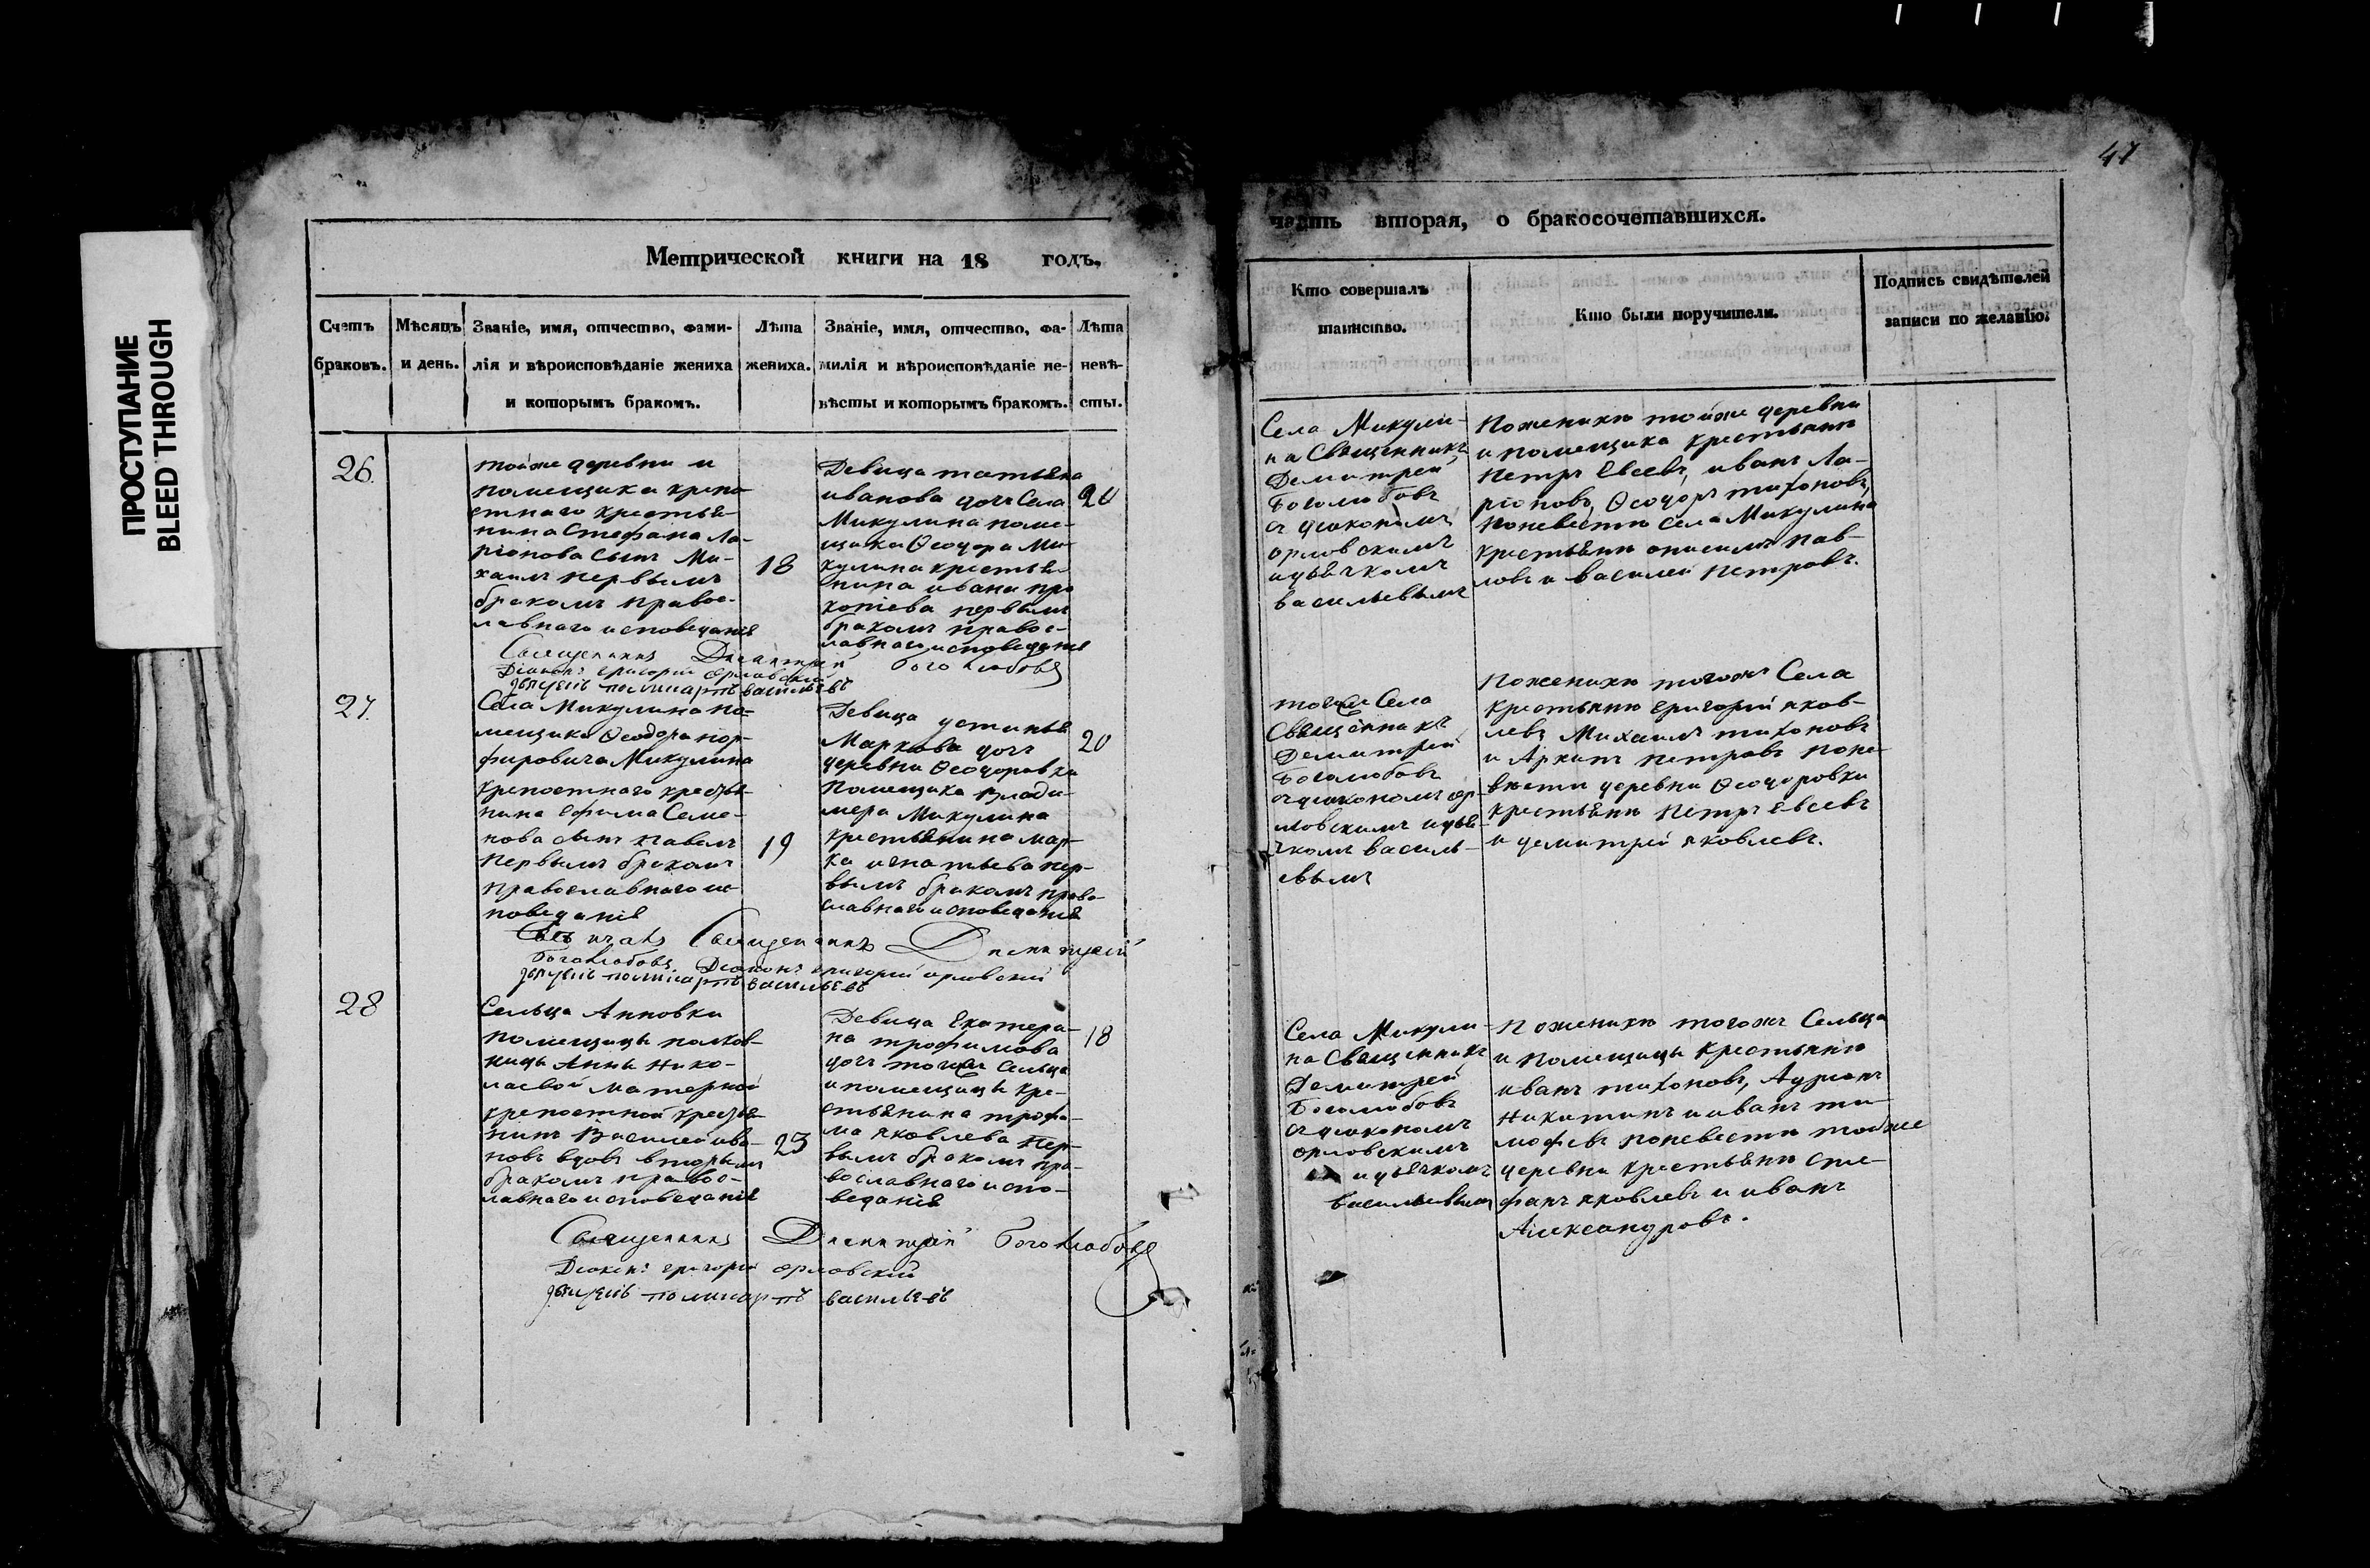 ПРОСТУПАНИЕ
BLEED THROUGH
Метрической книги на 18 годъ,
Счетъ браковъ.
Мѣсяцъ и день.
Званіе, имя, отчество, фами-
лія и вѣроисповѣданіе жениха
и которымъ бракомъ.
Лѣта жениха.
Званіе, имя, отчество, фа-
милія и вѣроисповѣданіе не-
вѣсты и которымъ бракомъ.
Лѣта невѣ-
сты.
26.
тойже деревни и
помещика крепо
стнаго крестья-
нина Стефана Ла-
ріонова сынъ Ми-
хаилъ первымъ
бракомъ правос-
лавнаго исповеданія
18
Девица татьяна
иванова дочь Села
Микулина поме-
щика Ѳеодора Ми-
кулина крестья-
нина ивана про
копіева первымъ
бракомъ правос-
лавнаго исповеданія
20
Священникъ Димитрій Боголюбовъ
Діаконъ григорій орловскій
дьячекъ поликарпъ васильевъ
27.
Села Микулина по-
мещика Ѳеодора пор-
фировича Микулина
крепостнаго крестья-
нина ефима Семе-
нова сынъ павелъ
первымъ бракомъ
православнаго ис-
поведанія
19
Девица устинья
Маркова дочь
деревни Ѳеодоровки
помещика Влади-
мера Микулина
крестьянина мар-
ка игнатьева пер-
вымъ бракомъ право-
славнаго исповеданія
20
Священникъ Димитрій
Боголюбовъ Діаконъ григорій орловскій
дьячекъ поликарпъ васильевъ
28
Сельца Анновки
помещицы полков-
ницы Анны Нико-
лаевой
крепостной крестья-
нинъ Василей ива-
новъ вдовъ вторымъ
бракомъ правос-
лавнаго исповеданія
23
Девица Екатери-
на трофимова
дочь тогоже Сельца
и помещицы кре-
стьянина трофи-
ма яковлева пер-
вымъ бракомъ пра-
вославнаго испо-
веданія
18
Священникъ Димитрій Боголюбовъ
Діаконъ григорій орловскій
дьячекъ поликарпъ васильевъ
47
часть вторая, о бракосочетавшихся.
Кто совершалъ
таинство.
Кто были поручители.
Подпись свидѣтелей
записи по желанію.
Села Микули-
на Священникъ
Димитрей
Боголюбовъ
съ діакономъ
орловскимъ
и дьячкомъ
васильевымъ
Поженихѣ тойже деревни
и помещика крестьяне
Петръ Евсеевъ, иванъ Ла-
ріоновъ, Ѳеодоръ тихоновъ,
Поневестѣ села Микулина
крестьяне анисимъ пав-
ловъ и василей Петровъ.
тогоже Села
Священникъ
Димитрей
Боголюбовъ
съ діакономъ ор-
ловскимъ и дья-
чкомъ василь-
евымъ
Поженихѣ тогожъ Села
крестьяне григорій яков-
левъ Михаилъ тихоновъ
и Архипъ петровъ поне-
вести деревни Ѳеодоровки
крестьяне Петръ Евсеевъ
и димитрій яковлевъ.
Села Микули-
на Священникъ
Димитрей
Боголюбовъ
съ діакономъ
орловскимъ
и дьячкомъ
васильевымъ
Поженихѣ тогожъ Сельца
и помещицы крестьяне
иванъ тихоновъ, Адріанъ
Никитинъ и иванъ ти-
мофевъ поневестѣ тойже
деревни крестьяне сте-
фанъ яковлевъ и иванъ
Александровъ.